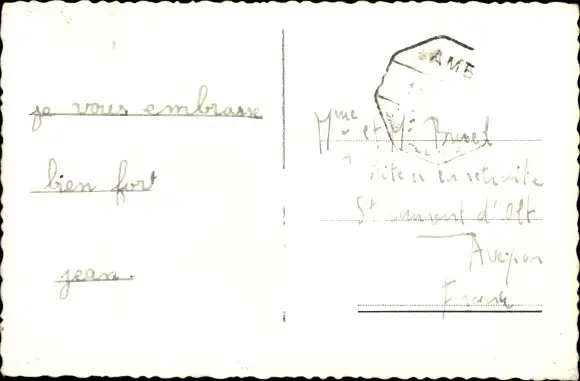 je vous embrasse
bien fort
jean.
AMB
Mme et Mr Burel
en retraite
St Laurent d'Olt
Aveyron
France